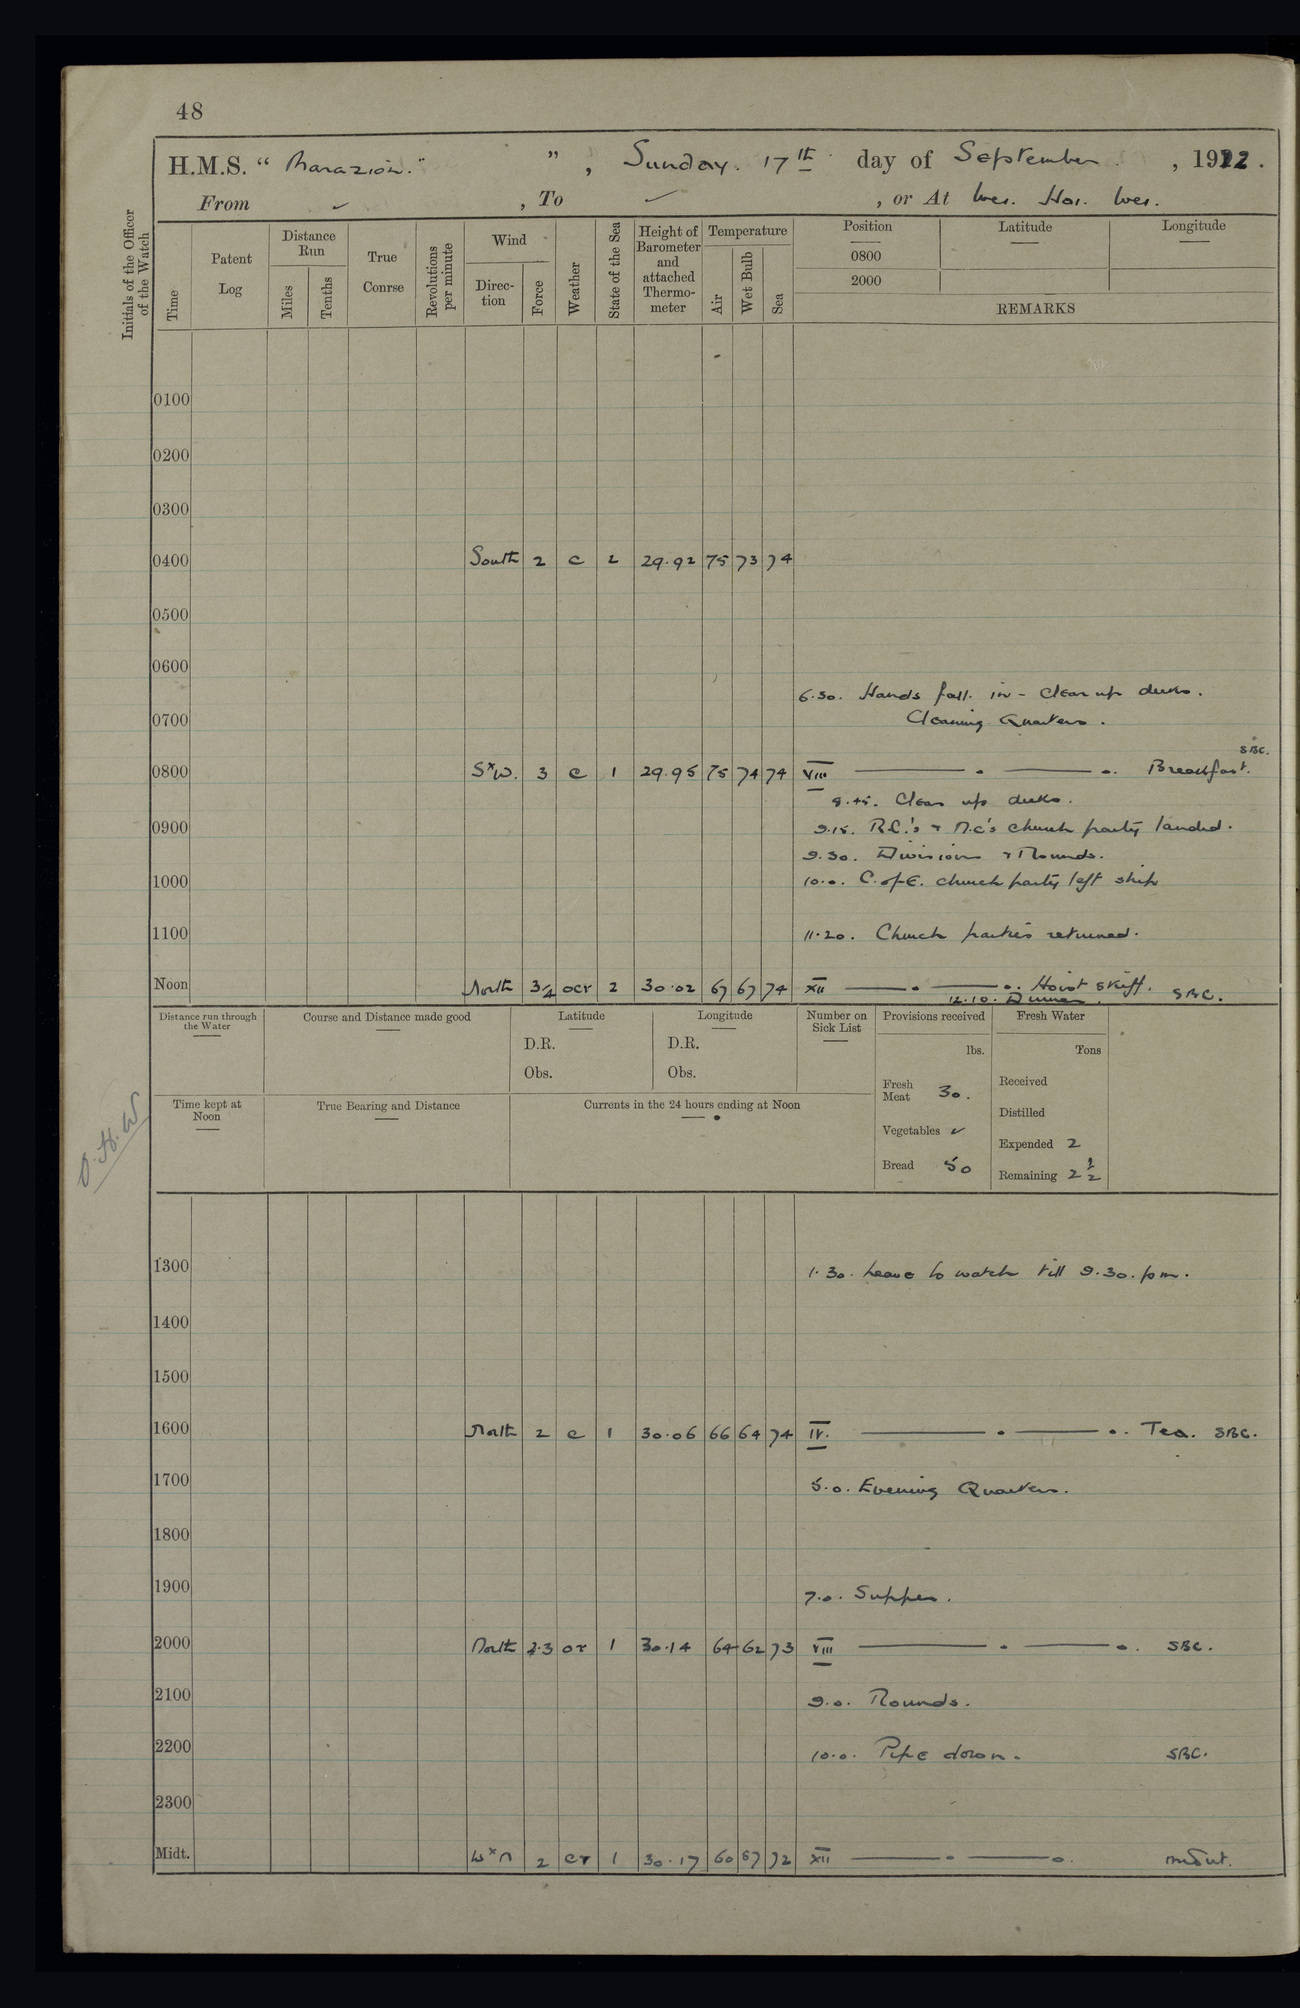 48
H.M.S. “ Marazion. ” , Sunday. 17th day of September , 1922 .
From ✓ , To ✓ , or At Wei. Hai. Wei.
Initials of the Officer of the Watch
Time
Patent Log
Distance Run
Miles
Tenths
True Conrse
Revolutions per minute
Wind
Direc- tion
Force
Weather
State of the Sea
Height of Barometer and attached Thermo- meter
Temperature
Air
Wet Bulb
Sea
Position
0800
2000
Latitude
Longitude
REMARKS
0100
0200
0300
0400 South 2 c 2 29.92 75 73 74
0500
0600
6.30. Hands fall. in - Clear up decks.
0700 Cleaning Quarters.
SBC.
0800 SxW. 3 c 1 29.95 75 74 74 VIII Breakfast.
8.45. Clear up decks.
0900 9.15. R.C.'s & N.C's church party landed.
9.30. Divisions & Rounds.
1000 10.0. C. of E. church party left ship
1100 11.20. Church parties returned.
Noon North 3/4 ocr 2 30.02 67 67 74 XII Hoist skiff.
12.10. Dinner. SBC.
Distance run through the Water
Course and Distance made good
Latitude
D.R.
Obs.
Longitude
D.R.
Obs.
Number on Sick List
Provisions received
lbs.
Fresh Meat 30.
Vegetables ✓
Bread 50
Fresh Water
Tons
Received
Distilled
Expended 2
Remaining 2 1/2
Time kept at Noon
True Bearing and Distance
Currents in the 24 hours ending at Noon
1300 1.30. Leave to watch till 9.30. pm.
1400
1500
1600 North 2 c 1 30.06 66 64 74 IV. Tea. SBC.
1700 5.0. Evening Quarters.
1800
1900 7.0. Supper.
2000 North 2.3 or 1 30.14 64 62 73 VIII SBC.
2100 9.0. Rounds.
2200 10.0. Pipe down. SBC.
2300
Midt. WxN 2 cr 1 30.17 60 57 72 XII